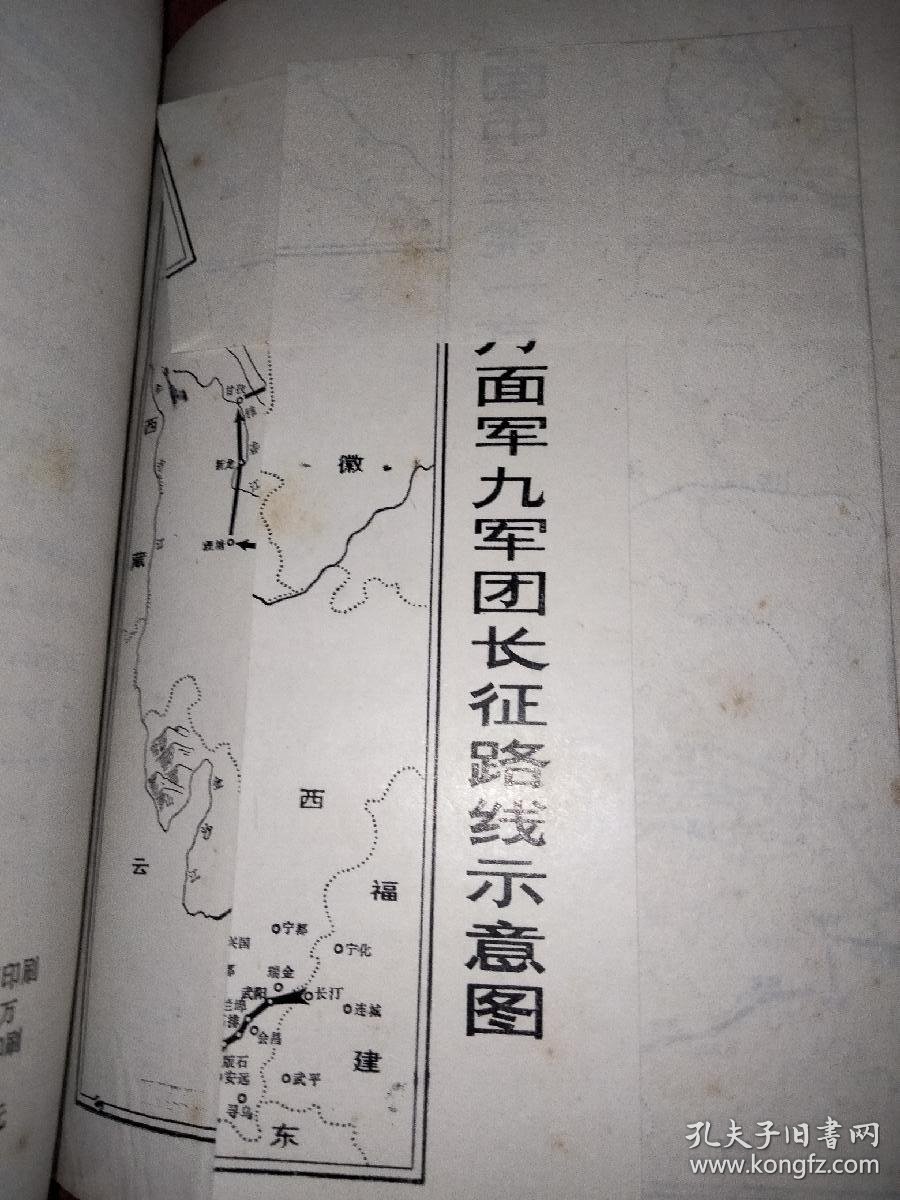 面军九军团长征路线示意图
甘孜
西
徽
新龙
藏
西
云
福
宁都
兴国
宁化
瑞金
武阳
长汀
连城
会昌
建
版石
安远
武平
寻乌
东
印刷
万
刷
孔夫子旧书网
www.kongfz.com